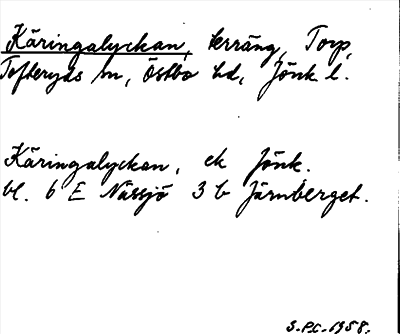 Käringalyckan, terräng, Torp,
Tofteryds sn, Östbo hd, Jönk l.
Käringalyckan, ek Jönk.
bl. 6 E Nässjö 3 b Järnberget.
S.Pl.-1958.